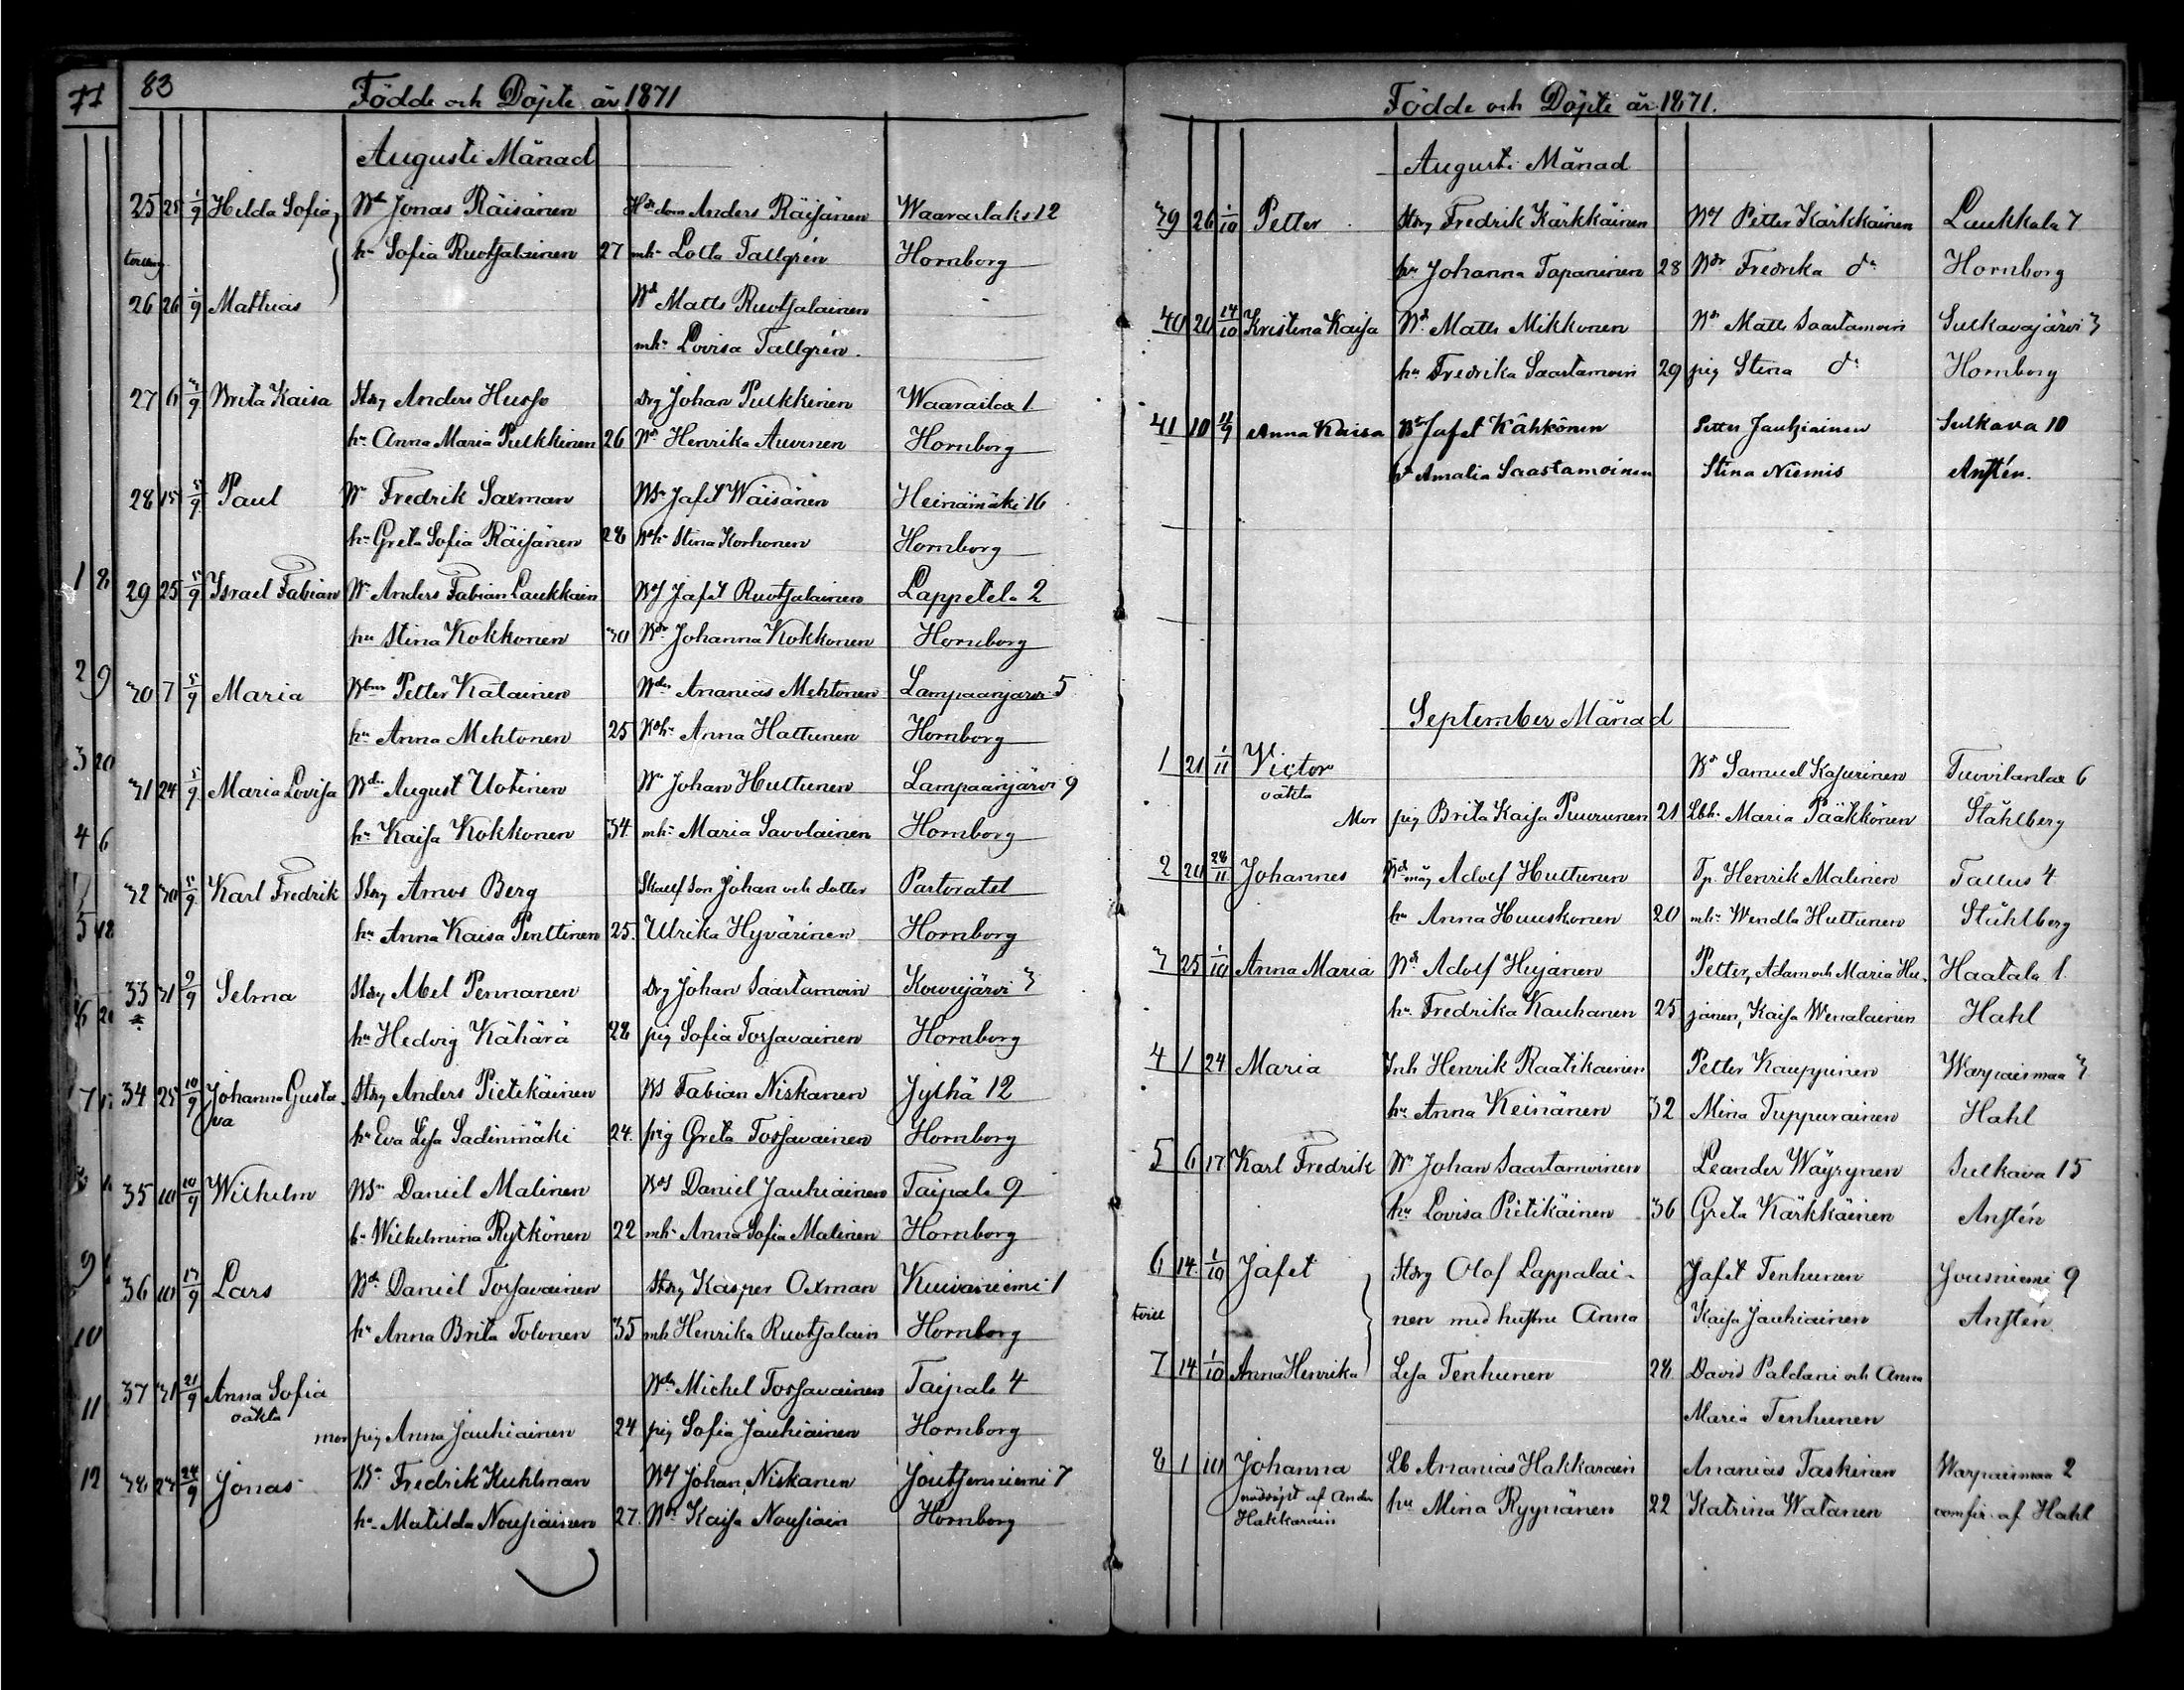 71
83 Födde och Döpte år 1871
Augusti Månad
25 25 1/9 Hilda Sofia Jonas Räisänen Anders Räisänen Waaraslaks 12
hu Sofia Ruotsalainen 27 mh Lotta Tallgrén Hornborg
26 26 1/9 Mathias Matts Ruotsalainen
mh Lovisa Tallgrén.
27 6 Brita Kaisa Anders Husso Drg Johan Pulkkinen Waaraslax 1.
hu Anna Maria Pulkkinen 26 Henrika Auvinen Hornborg
28 15 5/9 Paul Fredrik Saxman Jafet Wäisänen Heinämäki 16
hu Greta Sofia Räisänen 28 Stina Korhonen Hornborg
29 25 5/9 Israel Fabian Anders Fabian Laukkain Jafet Ruotsalainen Lappetela 2
hu Stina Kokkonen 30 Johanna Kokkonen Hornborg
30 7 5/9 Maria Petter Katainen Ananias Mehtonen Lampaanjärvi 5
hu Anna Mehtonen 25 Anna Hattunen Hornborg
31 24 5/9 Maria Lovisa August Uotinen Johan Huttunen Lampaanjärvi 9
hu Kaisa Kokkonen 34 mh Maria Savolainen Hornborg
32 30 5/9 Karl Fredrik Amos Berg son Johan och dotter Pastoratet
hu Anna Kaisa Penttinen 25. Ulrika Hyvärinen Hornborg
33 31 9/9 Selma Abel Pennanen Drg Johan Saastamoin Kouvujärvi 3
hu Hedvig Kähärä 28 pig Sofia Tossavainen Hornborg
34 25 10/9 Johanna Gusta Anders Pietikäinen Fabian Niskanen Jylhä 12
va
hu Eva Lisa Sadinmäki 24. pig Greta Tossavainen Hornborg
35 10 10/9 Wilhelm Daniel Malinen Daniel Jauhiainen Taipale 9
hu Wilhelmina Rytkönen 22 mh Anna Sofia Malinen Hornborg
36 10 17/9 Lars Daniel Tossavainen Kasper Oxman Kuivaniemi 1
hu Anna Brita Tolonen 35 mh Henrika Ruotsalain Hornborg
37 31 21/9 Anna Sofia Michel Tossavainen Taipale 4
oäkta
mor pig Anna Jauhiainen 24 pig Sofia Jauhiainen Hornborg
38 27 24/9 Jonas Fredrik Kuhlman Johan Niskanen Joutsenniemi 7
hu Matilda Nousiainen 27. Kaisa Nousiain Hornborg
Födde och Döpte år 1871.
Augusti Månad
39 26 1/10 Petter Fredrik Kärkkäinen Petter Kärkkäinen Laukkala 7
hu Johanna Tapaninen 28 Fredrika do Hornborg
40 20 14/10 Kristina Kaisa Matts Mikkonen Matts Saastamoin Sulkavajärvi 3
hu Fredrika Saastamoin 29 pig Stina do Hornborg
41 10 11/9 Anna Kaisa Jafet Kähkönen Petter Jauhiainen Sulkava 10
hu Amalia Saastamoinen Stina Niemis Anstén.
September Månad
1 21 1/11 Victor Samuel Kasurinen Tuovilanlax 6
oäkta
Mor pig Brita Kaisa Puurunen 21 Maria Pääkkönen Ståhlberg
2 20 28/11 Johannes Adolf Huttunen Henrik Malinen Tallus 4
hu Anna Huuskonen 20 mh Wendla Huttunen Ståhlberg
3 25 1/10 Anna Maria Adolf Hujanen Petter, Adam och Maria Hu- Haatala 1.
hu Fredrika Kauhanen 25 janen, Kaisa Wenalainen Hahl
4 1 24 Maria Inh Henrik Raatikainen Petter Kauppinen Warpaismaa 3
hu Anna Keinänen 32 Mina Tuppurainen Hahl
5 6 17 Karl Fredrik Johan Saastamoinen Leander Wäyrynen Sulkava 15
hu Lovisa Pietikäinen 36 Greta Kärkkäinen Anstén
6 14 1/10 Jafet Olof Lappalai- Jafet Tenhunen Jousniemi 9
tvill nen med hustru Anna Kaisa Jauhiainen Anstén
7 14 1/10 Anna Henrika Lisa Tenhunen 28 David Paldani och Anna
Maria Tenhunen
8 1 10 Johanna Lb Ananias Hakkarain Ananias Taskinen Warpaismaa 2
nöddöpt af Ander
Hakkarain
hu Mina Ryynänen 22 Katrina Watanen comfir. af Hahl